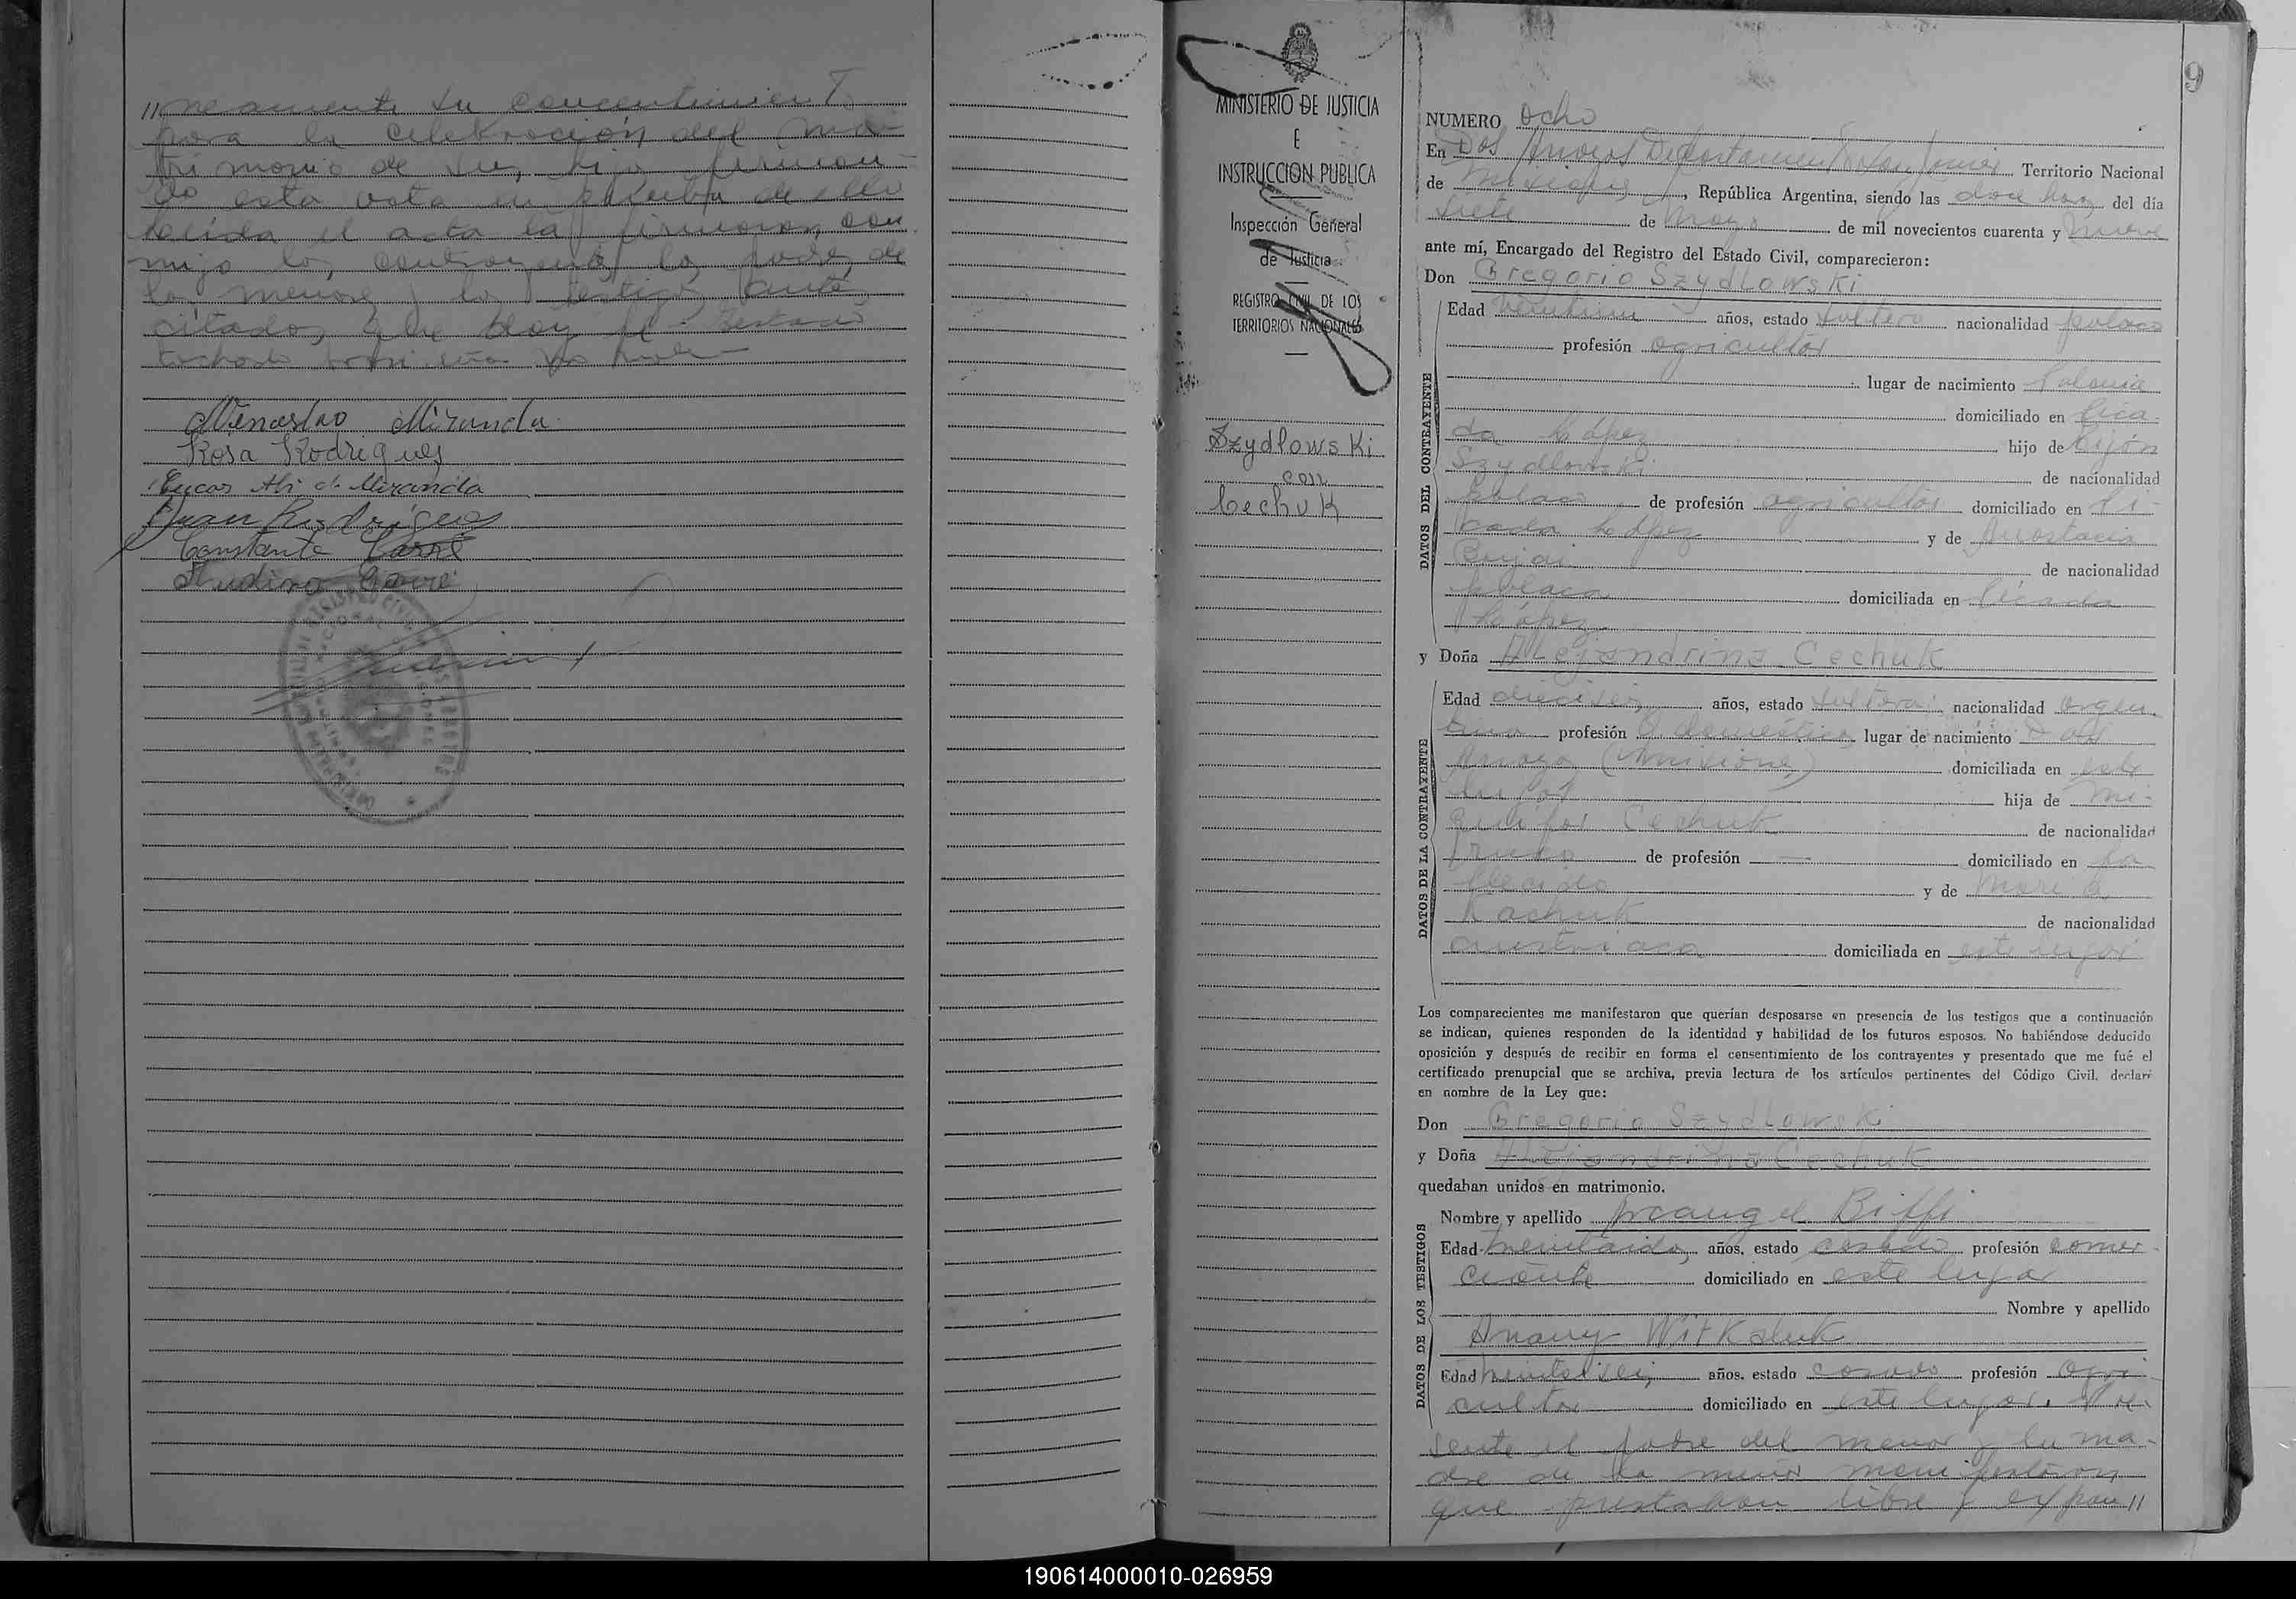 //neamente su concentimient
para la celebración del ma-
trimonio de sus hijos firman-
do esta acta en prueba de ello
leída el acta la firmaron con-
migo los contrayentes los padres de
los menores y los testigos ante
citados
tachado
Rosa Rodrigues
Lucas de Miranda
Juan Rodrigues
Constante Carré
Carré
MINISTERIO DE JUSTICIA
E
INSTRUCCION PUBLICA
Inspección General
de Justicia
REGISTRO CIVIL DE LOS
TERRITORIOS NACIONALES
Szydlowski
con
Cechuk
9
NUMERO ocho
En Dos Arroyos Departamento San Javier Territorio Nacional
de Misiones, República Argentina, siendo las doce horas del día
siete de Mayo de mil novecientos cuarenta y nueve
ante mí, Encargado del Registro del Estado Civil, comparecieron:
Don Gregorio Szydlowski
DATOS DEL CONTRAYENTE
Edad veintiun años, estado soltero nacionalidad polaco
profesión agricultor
lugar de nacimiento Polonia
domiciliado en Pica-
da López hijo de
Szydlowski de nacionalidad
Polaco de profesión agricultor domiciliado en Pi-
cada López y de Anastacia
de nacionalidad
polaca domiciliada en Picada
López
y Doña Alejandrina Cechuk
DATOS DE LA CONTRAYENTE
Edad dieciseis años, estado soltera nacionalidad argen-
tina profesión q. domésticos lugar de nacimiento Dos
Arroyos (Misiones) domiciliada en este
lugar hija de
Cechuk de nacionalidad
ruso de profesión — domiciliado en fa-
llecido y de María
Kachuk de nacionalidad
austriaca domiciliada en este lugar
Los comparecientes me manifestaron que querían desposarse en presencia de los testigos que a continuación
se indican, quienes responden de la identidad y habilidad de los futuros esposos. No habiéndose deducido
oposición y después de recibir en forma el consentimiento de los contrayentes y presentado que me fué el
certificado prenupcial que se archiva, previa lectura de los artículos pertinentes del Código Civil, declaré
en nombre de la Ley que:
Don Gregorio Szydlowski
y Doña Alejandrina Cechuk
quedaban unidos en matrimonio.
DATOS DE LOS TESTIGOS
Nombre y apellido Arcangel Biffi
Edad treintaidos años, estado casado profesión comer-
ciante domiciliado en este lugar
Nombre y apellido
Anany Witkaluk
Edad años, estado casado profesión agri-
cultor domiciliado en este lugar. Pre-
sente el padre del menor y la ma-
dre de la menor manifestaron
que prestaban libre y expon//
190614000010-026959